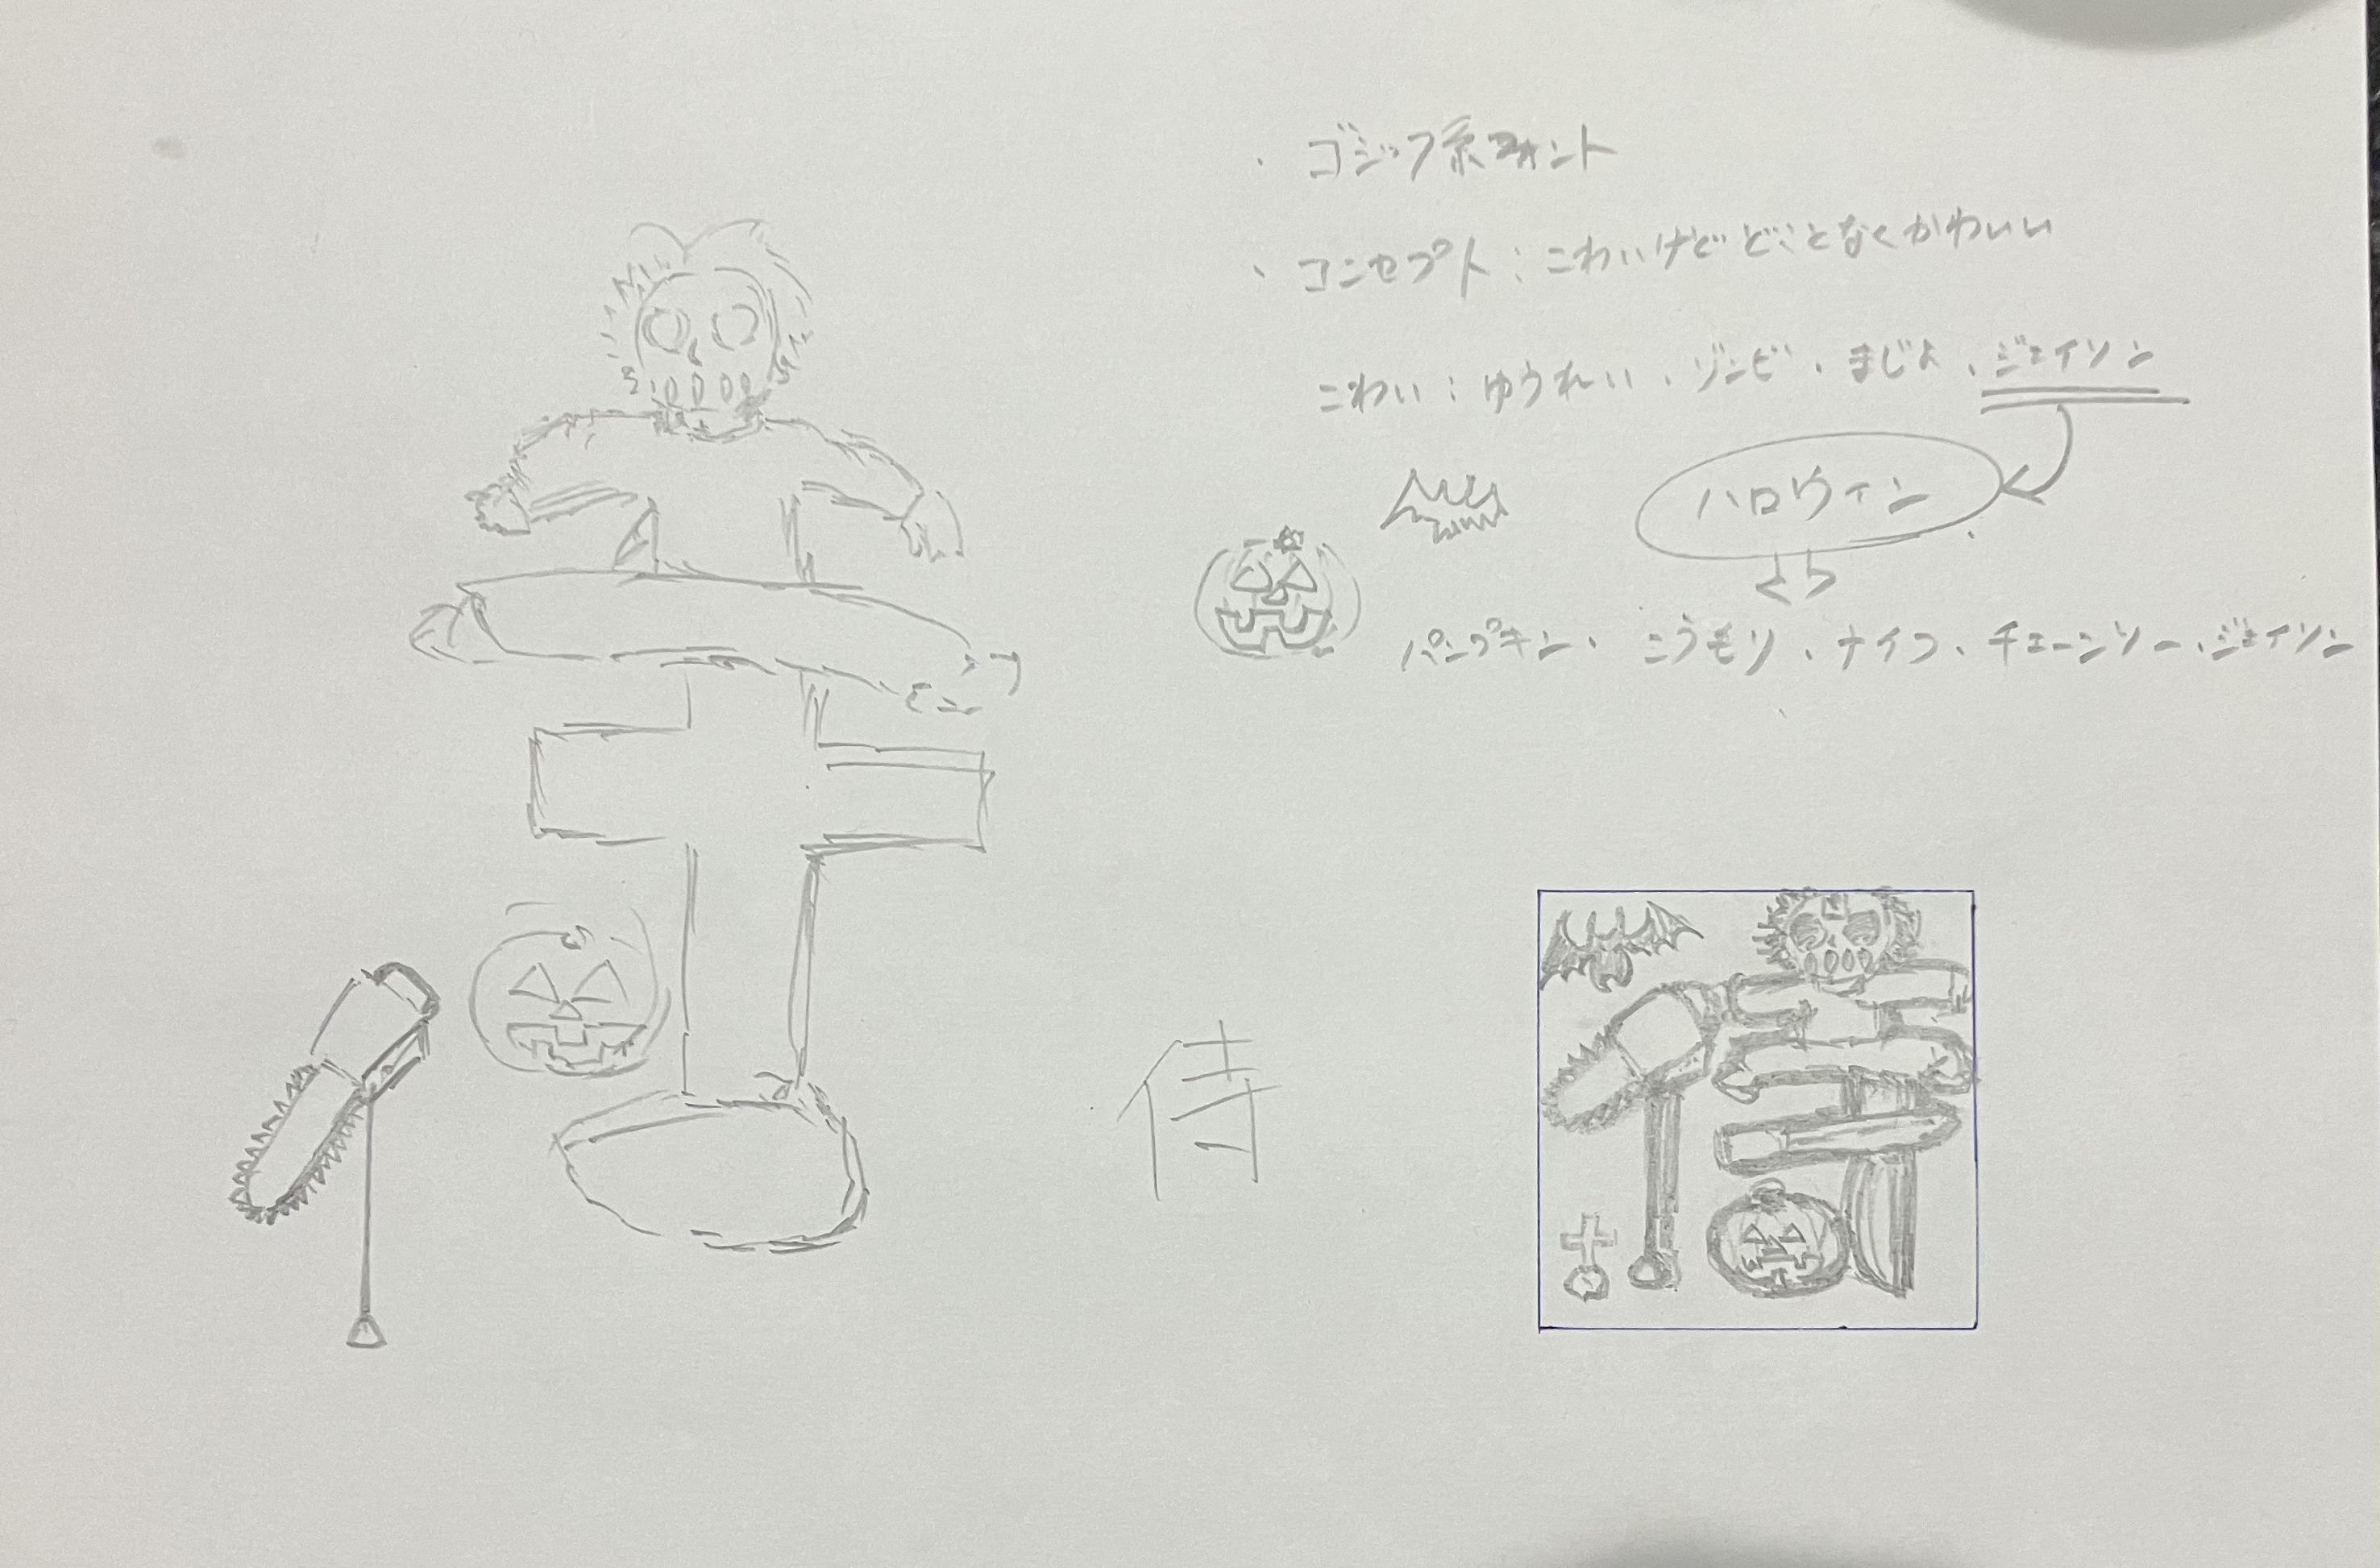 ・ゴシック系フォント
・コンセプト：こわいけどどことなくかわいい
こわい：ゆうれい、ゾンビ、まじょ、ジェイソン
ハロウィン
パンプキン、こうもり、ナイフ、チェーンソー、ジェイソン
侍